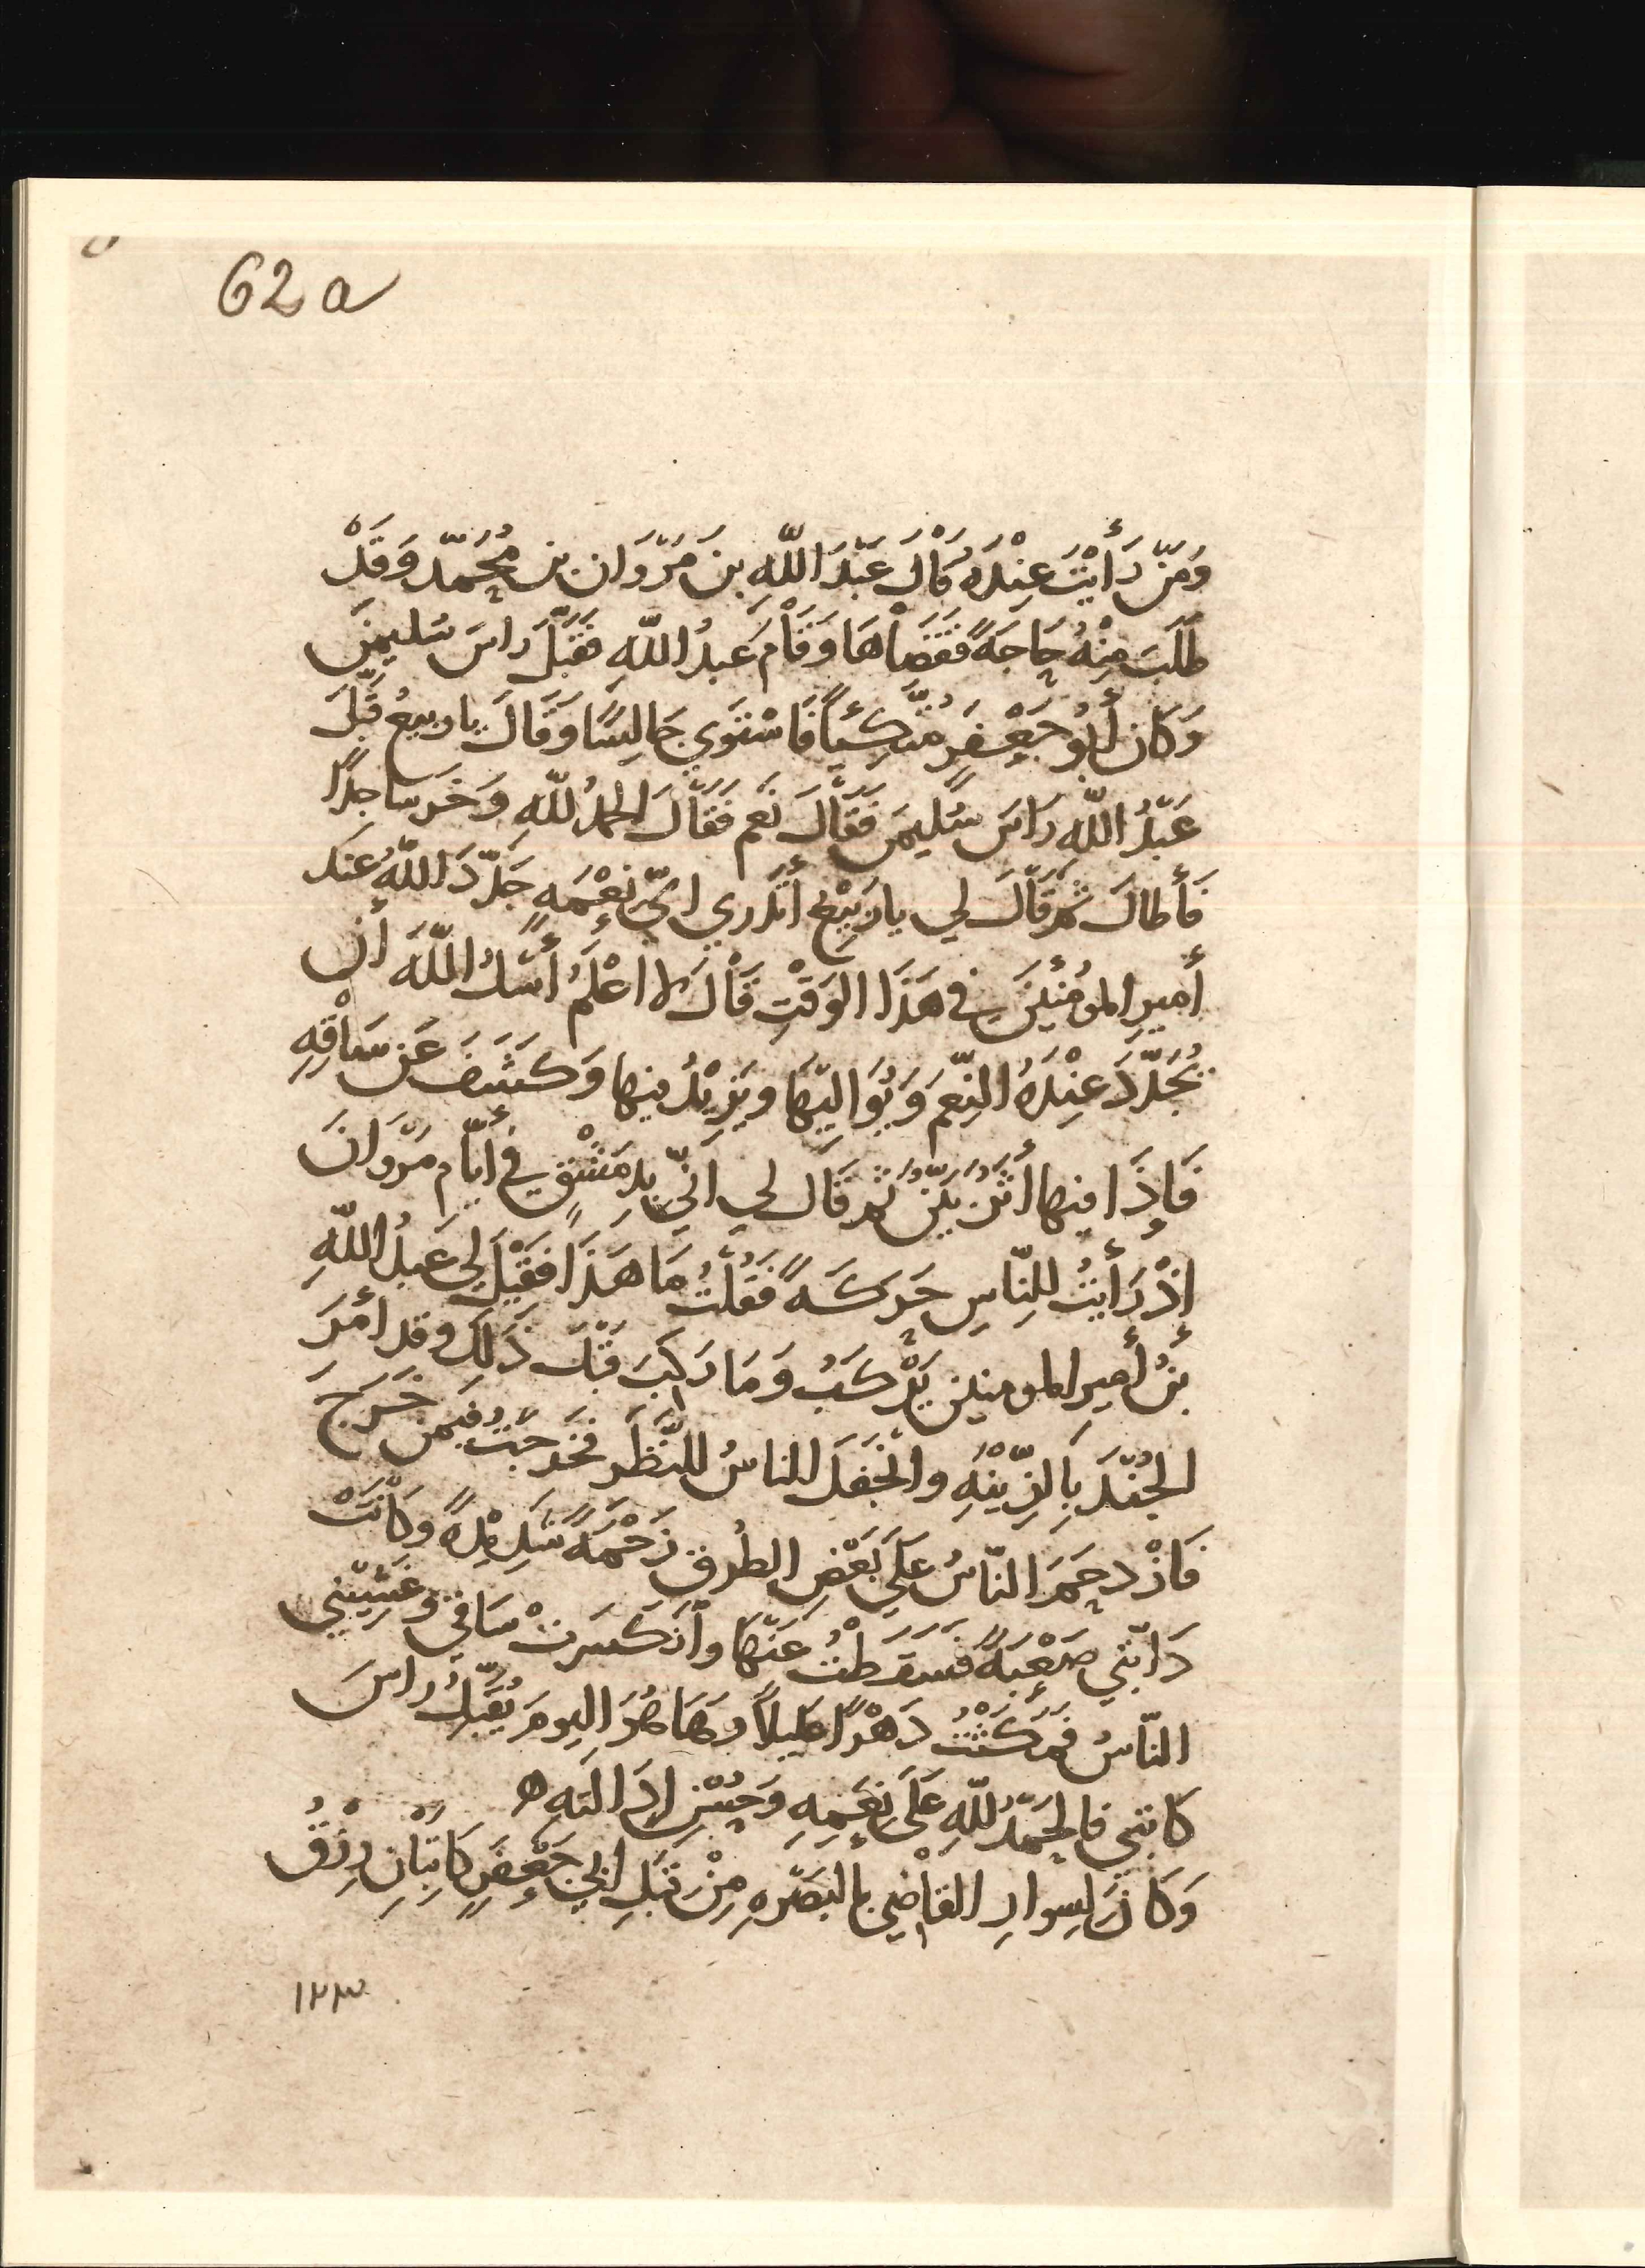 62a
وَمَنْ رَأَيْتَ عِنْدَهُ قَالَ عَبْدَ اللّهِ بنَ مَرْوَان بن مُحَمّد وَقَدْ
طَلَبَ مِنْهُ حَاجَةً فَقَضَاهَا وَقَامَ عَبدُ اللّهِ فقَبَّلَ راسَ سُليمنَ
وَكَان أَبُو جَعْفَرٍ مُتَّكِئاً فَاسْتَوَي جَالِسًا وَقَالَ يا ربيعُ قَبَّلَ
عَبْدُ اللّه رَاسَ سُليمَنَ فَقَالَ نَعَم فَقَالَ الحمدُ للّهِ وَخَر ساجدًا
فَأَطالَ ثُمَّ قَالَ لي يا رَبِيْعُ أَتَدري ايّ نِعْمَهٍ جَدّدَ اللّهُ عندَ
أَمِيرِ المومِنِينَ في هَذَا الوَقْتِ قَالَ لا اعْلَمُ أَسَلُ اللّهَ أن
يُجَدّدَ عِنْدَهُ النِّعَمَ وَيُوَالِيَهَا ويَزِيْدُ فيها وَكَشَفَ عَن سَاقِهِ
فَإِذَا فيها أَثَرٌ بَيّنٌ ثم قَال لي انّي بِدِمَشْقٍ في أيّام مَرْوَانَ
إذْ رَأَيتُ للنّاسِ حَركَةً فَقُلتُ مَا هَذَا فَقيْلَ لي عَبدُ اللّهِ
بنُ أَمِير المومنين يَرْكَبُ وَمَا رَكِبَ قَبْلَ ذَلِكَ وقد أمَرَ
الجُنْدَ بِالزّيْنَهِ وانْجَفَلَ الناسُ للنَّظَرِ فخَرَجتُ فيمَن خَرَجَ
فَازْدحَمَ النّاسُ عَلَي بَعْضِ الطُرقِ زَحْمَةً شَدِيْدةً وَكَانَتْ
دَابّتي صَعْبَةً فَسَقَطْتُ عَنْهَا وانْكسَرَتْ سَاقي وغَشِيَني
النّاسُ فمَكَثْتُ دَهْرًا عليلاً وهَا هُوَ اليومَ يُقَبِّلُ راسَ
كاتبي فالحَمدُ للّهِ عَلَي نِعَمِهِ وَحُسْنِ
وَكَانَ لِسِوارِ القاضي بالبَصْرهِ مِنْ قِبَلِ ابي جَعْفَرٍ كَاتِبَانِ رِزْقُ
١٢٣